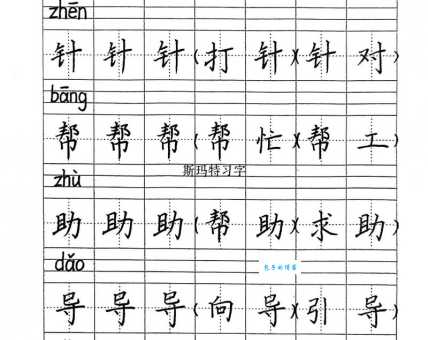 zhēn
针 针 针(打 针)(针 对)
bāng
帮 帮 帮(帮 忙)(帮 工)
斯玛特习字
zhù
助 助 助(帮 助)(求 助)
dǎo
导 导 导(向 导)(引 导)